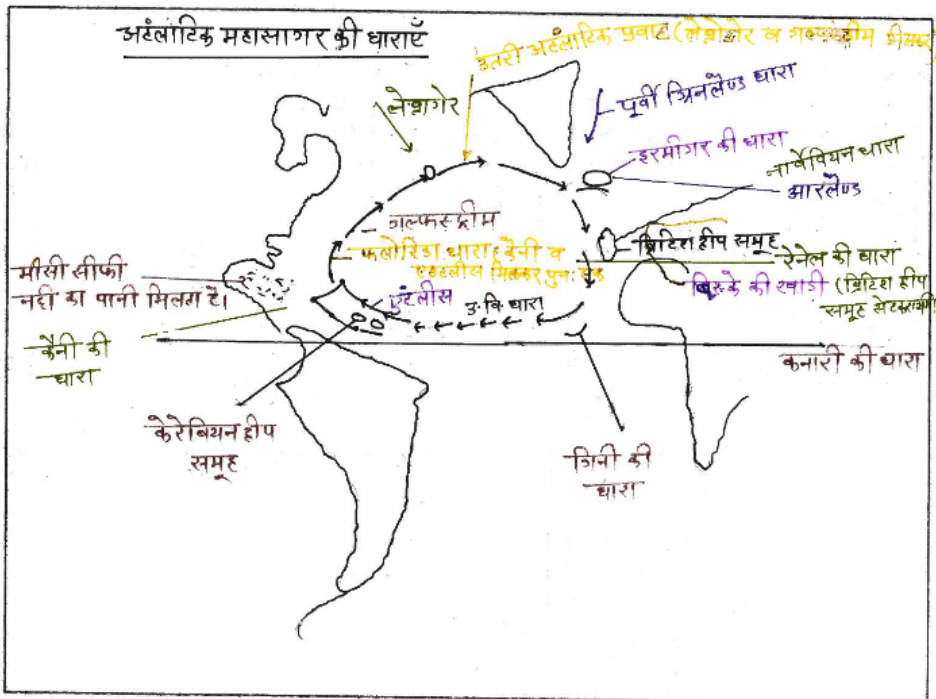 अटलांटिक महासागर की धाराएँ
उतरी अटलांटिक प्रवाह (लेब्रोडोर व गल्फस्ट्रीम
लेब्रागेर
पूर्वी ग्रिनलैण्ड धारा
इरमीगर की धारा
नार्वेवियन धारा
आरलैण्ड
गल्फस्ट्रीम
फ्लोरिडा धारा कैनी व
एंटलीस मिलकर पुनः
ब्रिटिश द्वीप समूह
रेनेल की धारा
बिस्के की खाडी (ब्रिटिश द्वीप
समूह से
मीसी सीफी
नदी का पानी मिलता है।
एंटलीस
उ. वि. धारा
कैनी की
धारा
कनारी की धारा
केरेबियन द्वीप
समूह
गिनी की
धारा